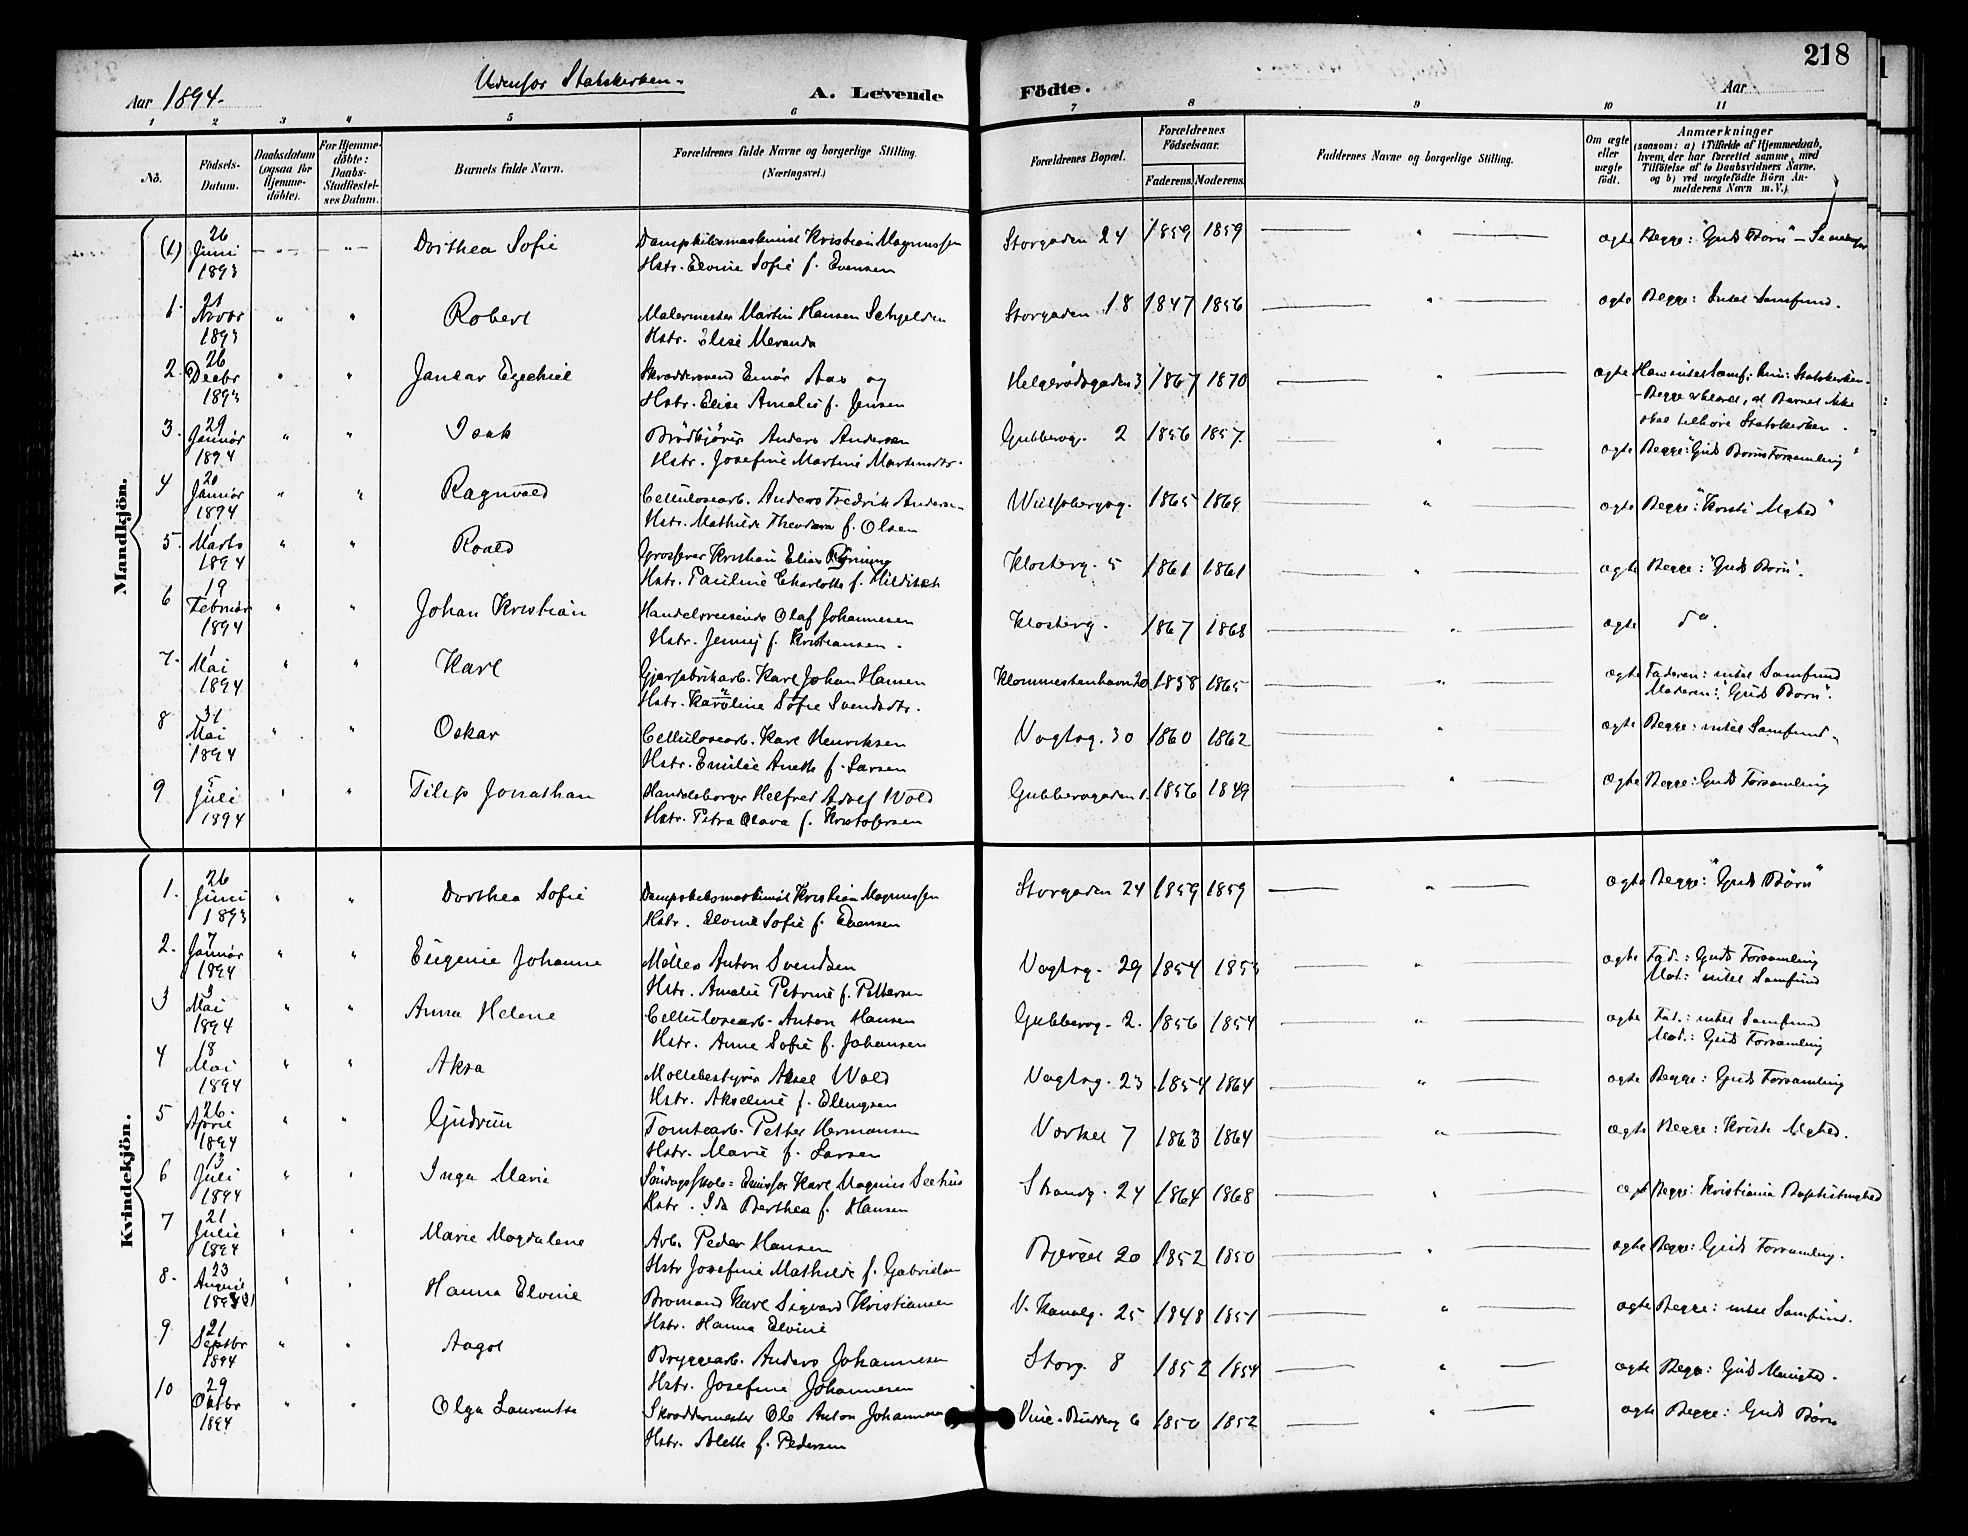 218
Aar 1894.
Udenfor Statskirken.
A. Levende
Födte.
Aar
1 2 3 4 5 6 7 8 9 10 11
No.
Födsels-Datum.
Daabsdatum (ogsaa for Hjemmedöbte).
For Hjemmedöbte: Daabs-Stadfæstelses Datum.
Barnets fulde Navn.
Forældrenes fulde Navne og borgerlige Stilling. (Næringsvei.)
Forældrenes Bopæl.
Forældrenes Födselsaar.
Faderens. Moderens.
Faddernes Navne og borgerlige Stilling.
Om ægte eller uægte födt.
Anmærkninger (saasom: a) i Tilfælde af Hjemmedaab, hvem der har forrettet samme, med Tilföielse af to Daabsvidners Navne, og b) ved uægtefödte Börn Anmelderens Navn m. V.)
Mandkjön.
(1) 26 Juni 1893 Dorthea Sofie Dampskibsmaskinist Kristian Magnussen Storgaden 24 1859 1859 ægte Begge: "Guds Børn"
Hstr. Elvine Sofie f. Evensen
1. 21 Novbr 1893 Robert Malermester Martin Hansen Storgaden 18 1847 1856 ægte Begge: Intet Samfund.
Hstr. Elise Meranda
2. 26 Decbr 1893 Skræddersvend Einar Aas og Helgerødsgaden 3 1867 1870 ægte Han intet Samf; hun: Statskirken
Hstr. Elise Amalie f. Jensen - Begge erklæret, at Barnet ikke
skal tilhøre Statskirken.
3. 29 Januar 1894 Isak Brödkjörer Anders Andersen Gubberog. 2 1856 1857 ægte Begge: "Guds Børns Forsamling"
Hstr. Josefine Martine Martinsdtr.
4 20 Januar 1894 Ragnvald Cellulosearb. Anders Fredrik Andersen Wulfsbergsg. 1865 1869 ægte Begge: "Kristi Mghed"
Hstr. Mathilde Theodora f. Olsen
5. 1 Marts 1894 Roald Grosserer Kristian Elias Klosterg. 5 1861 1861 ægte Begge: "Guds Børn".
Hstr. Pauline Charlotte f. Hilditch
6 19 Februar 1894 Johan Kristian Handelsreisende Olaf Johannesen Klosterg. 1867 1868 ægte do.
Hstr. Jenny f. Kristiansen.
7. 1 Mai 1894 Karl Gjærfabrikarb. Karl Johan Hansen 20 1858 1865 ægte Faderen: intet Samfund
Hstr. Karoline Sofie Svendsdtr. Moderen: "Guds Børn".
8 31 Mai 1894 Oskar Cellulosearb. Karl Henriksen Vogtsg. 30 1860 1862 ægte Begge: intet Samfund.
Hstr. Emilie Anette f. Larsen
9 5 Juli 1894 Filip Jonathan Handelsborger Helfred Adolf Wold Gubberogaden 1. 1856 1849 ægte Begge: Guds Forsamling
Hstr. Petra Olava f. Kristofersen
Kvindekjön.
1. 26 Juni 1893 Dorthea Sofie Dampskibsmaskinist Kristian Magnussen Storgaden 24 1859 1859 ægte Begge: "Guds Børn"
Hstr. Elvine Sofie f. Evensen
2. 7 Januar 1894 Eugenie Johanne Møller Anton Svendsen Vogtsg. 29 1854 1853 ægte Fad.: Guds Forsamling
Hstr. Amalie Petrine f. Pettersen Mod: intet Samfund
3 3 Mai 1894 Anna Helene Cellulosearb. Anton Hansen Gubberog. 2. 1856 1854 ægte Fad.: intet Samfund
Hstr. Anne Sofie f. Johansen Mod.: Guds Forsamling
4 18 Mai 1894 Aksa Møllebestyrer Aksel Wold Vogtsg. 23 1854 1864 ægte Begge: Guds Forsamling
Hstr. Akseline f. Ellingsen
5 26. April 1894 Gudrun Tomtearb. Petter Hermansen Værket 7 1863 1864 ægte Begge: Kristi Mghed.
Hstr. Marie f. Larsen
6 13 Juli 1894 Inga Marie Söndagsskole-Emissær Karl Magnus Strandg. 24 1864 1868 ægte Begge: Kristiania Baptistmghed
Hstr. Ida Berthea f. Hansen
7 21 Juli 1894 Marie Magdalene Arb. Peder Hansen Bjerget 20 1852 1850 ægte Begge: Guds Forsamling.
Hstr Josefine Mathilde f. Gabrielsen
8. 23 August Hanna Elvine Bromand Karl Sigvard Kristiansen V. Kanalg. 25 1848 1851 ægte Begge: intet Samfund.
Hstr. Hanna Elvine
9 21 Septbr 1894 Aagot Bryggearb. Anders Johannesen Storg. 8 1852 1854 ægte Begge: Guds Menighed.
Hstr. Josefine Johannesen
10 29 Oktbr 1894 Olga Laurentse Skræddermester Ole Anton Johannesen 6 1850 1852 ægte Begge: Guds Børn
Hstr. Alette f. Pedersen